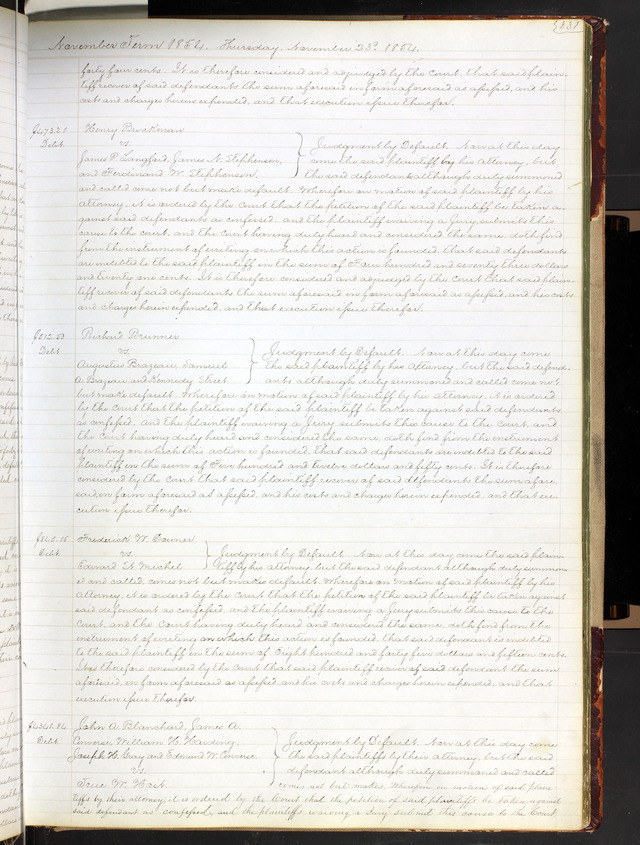 331
November Term 1854. Thursday, November 23d 1854.
forty four cents. It is therefore considered and adjudged by the Court, that said plain-
tiff recover of said defendants the sum aforesaid in form aforesaid as assessed, and his
costs and charges herein expended, and that execution issue therefor.
$473.21 Henry Brockman
Debt vs.
James P. Langford, James N. Stephenson,
and Ferdinand W. Stephenson.
Judgment by Default. Now at this day
come the said plaintiff by his attorney, but
the said defendants although duly summoned
and called come not but make default. Wherefore on motion of said plaintiff by his
attorney, it is ordered by the Court that the petition of the said plaintiff be taken a-
gainst said defendants as confessed, and the plaintiff waiving a Jury submits this
cause to the Court, and the Court having duly heard and considered the same, doth find
from the instrument of writing on which this action is founded, that said defendants
are indebted to the said plaintiff in the sum of Four hundred and seventy three dollars
and twenty one cents. It is therefore considered and adjudged by the Court that said plain-
tiff recover of said defendants the sum aforesaid in form aforesaid as assessed, and his costs
and charges herein expended, and that execution issue therefor.
$512.50 Richard Brunner
Debt vs.
Augustus Brazeau, Samuel
A. Brazeau, and Kennedy Street
Judgment by Default. Now at this day come
the said plaintiff by his attorney, but the said defend-
ants although duly summoned and called come not
but make default. Wherefore on motion of said plaintiff by his attorney, it is ordered
by the Court that the petition of the said plaintiff be taken against said defendants
as confessed, and the plaintiff waiving a Jury submits this cause to the Court, and
the Court having duly heard and considered the same, doth find from the instrument
of writing on which this action is founded, that said defendants are indebted to the said
plaintiff in the sum of Five hundred and twelve dollars and fifty cents. It is therefore
considered by the Court that said plaintiff recover of said defendants the sum afore-
said, in form aforesaid as assessed, and his costs and charges herein expended, and that exe-
cution issue therefor.
$845.15 Frederick W.
Debt vs.
Edward St. Michel
Judgment by Default. Now at this day come the said plain-
tiff by his attorney, but the said defendant although duly summon-
ed and called, comes not but makes default. Wherefore on motion of said plaintiff by his
attorney, it is ordered by the Court that the petition of the said plaintiff be taken against
said defendant as confessed, and the plaintiff waiving a Jury submits this cause to the
Court, and the Court having duly heard and considered the same, doth find from the
instrument of writing on which this action is founded, that said defendant is indebted
to the said plaintiff in the sum of Eight hundred and forty five dollars and fifteen cents.
It is therefore considered by the Court that said plaintiff recover of said defendant the sum
aforesaid, in form aforesaid as assessed, and his costs and charges herein expended, and that
execution issue therefor.
John A. Blanchard, James A.
Debt Converse, William H. Harding,
Joseph H. Gray and Edmund W. Converse.
vs.
True W. Hart.
Judgment by Default. Now at this day come
the said plaintiffs by their attorney, but the said
defendant although duly summoned and called
comes not but makes. Wherefore on motion of said plain-
tiffs by their attorney, it is ordered by the Court that the petition of said plaintiffs be taken against
said defendant as confessed, and the plaintiffs waiving a Jury submit this cause to the Court